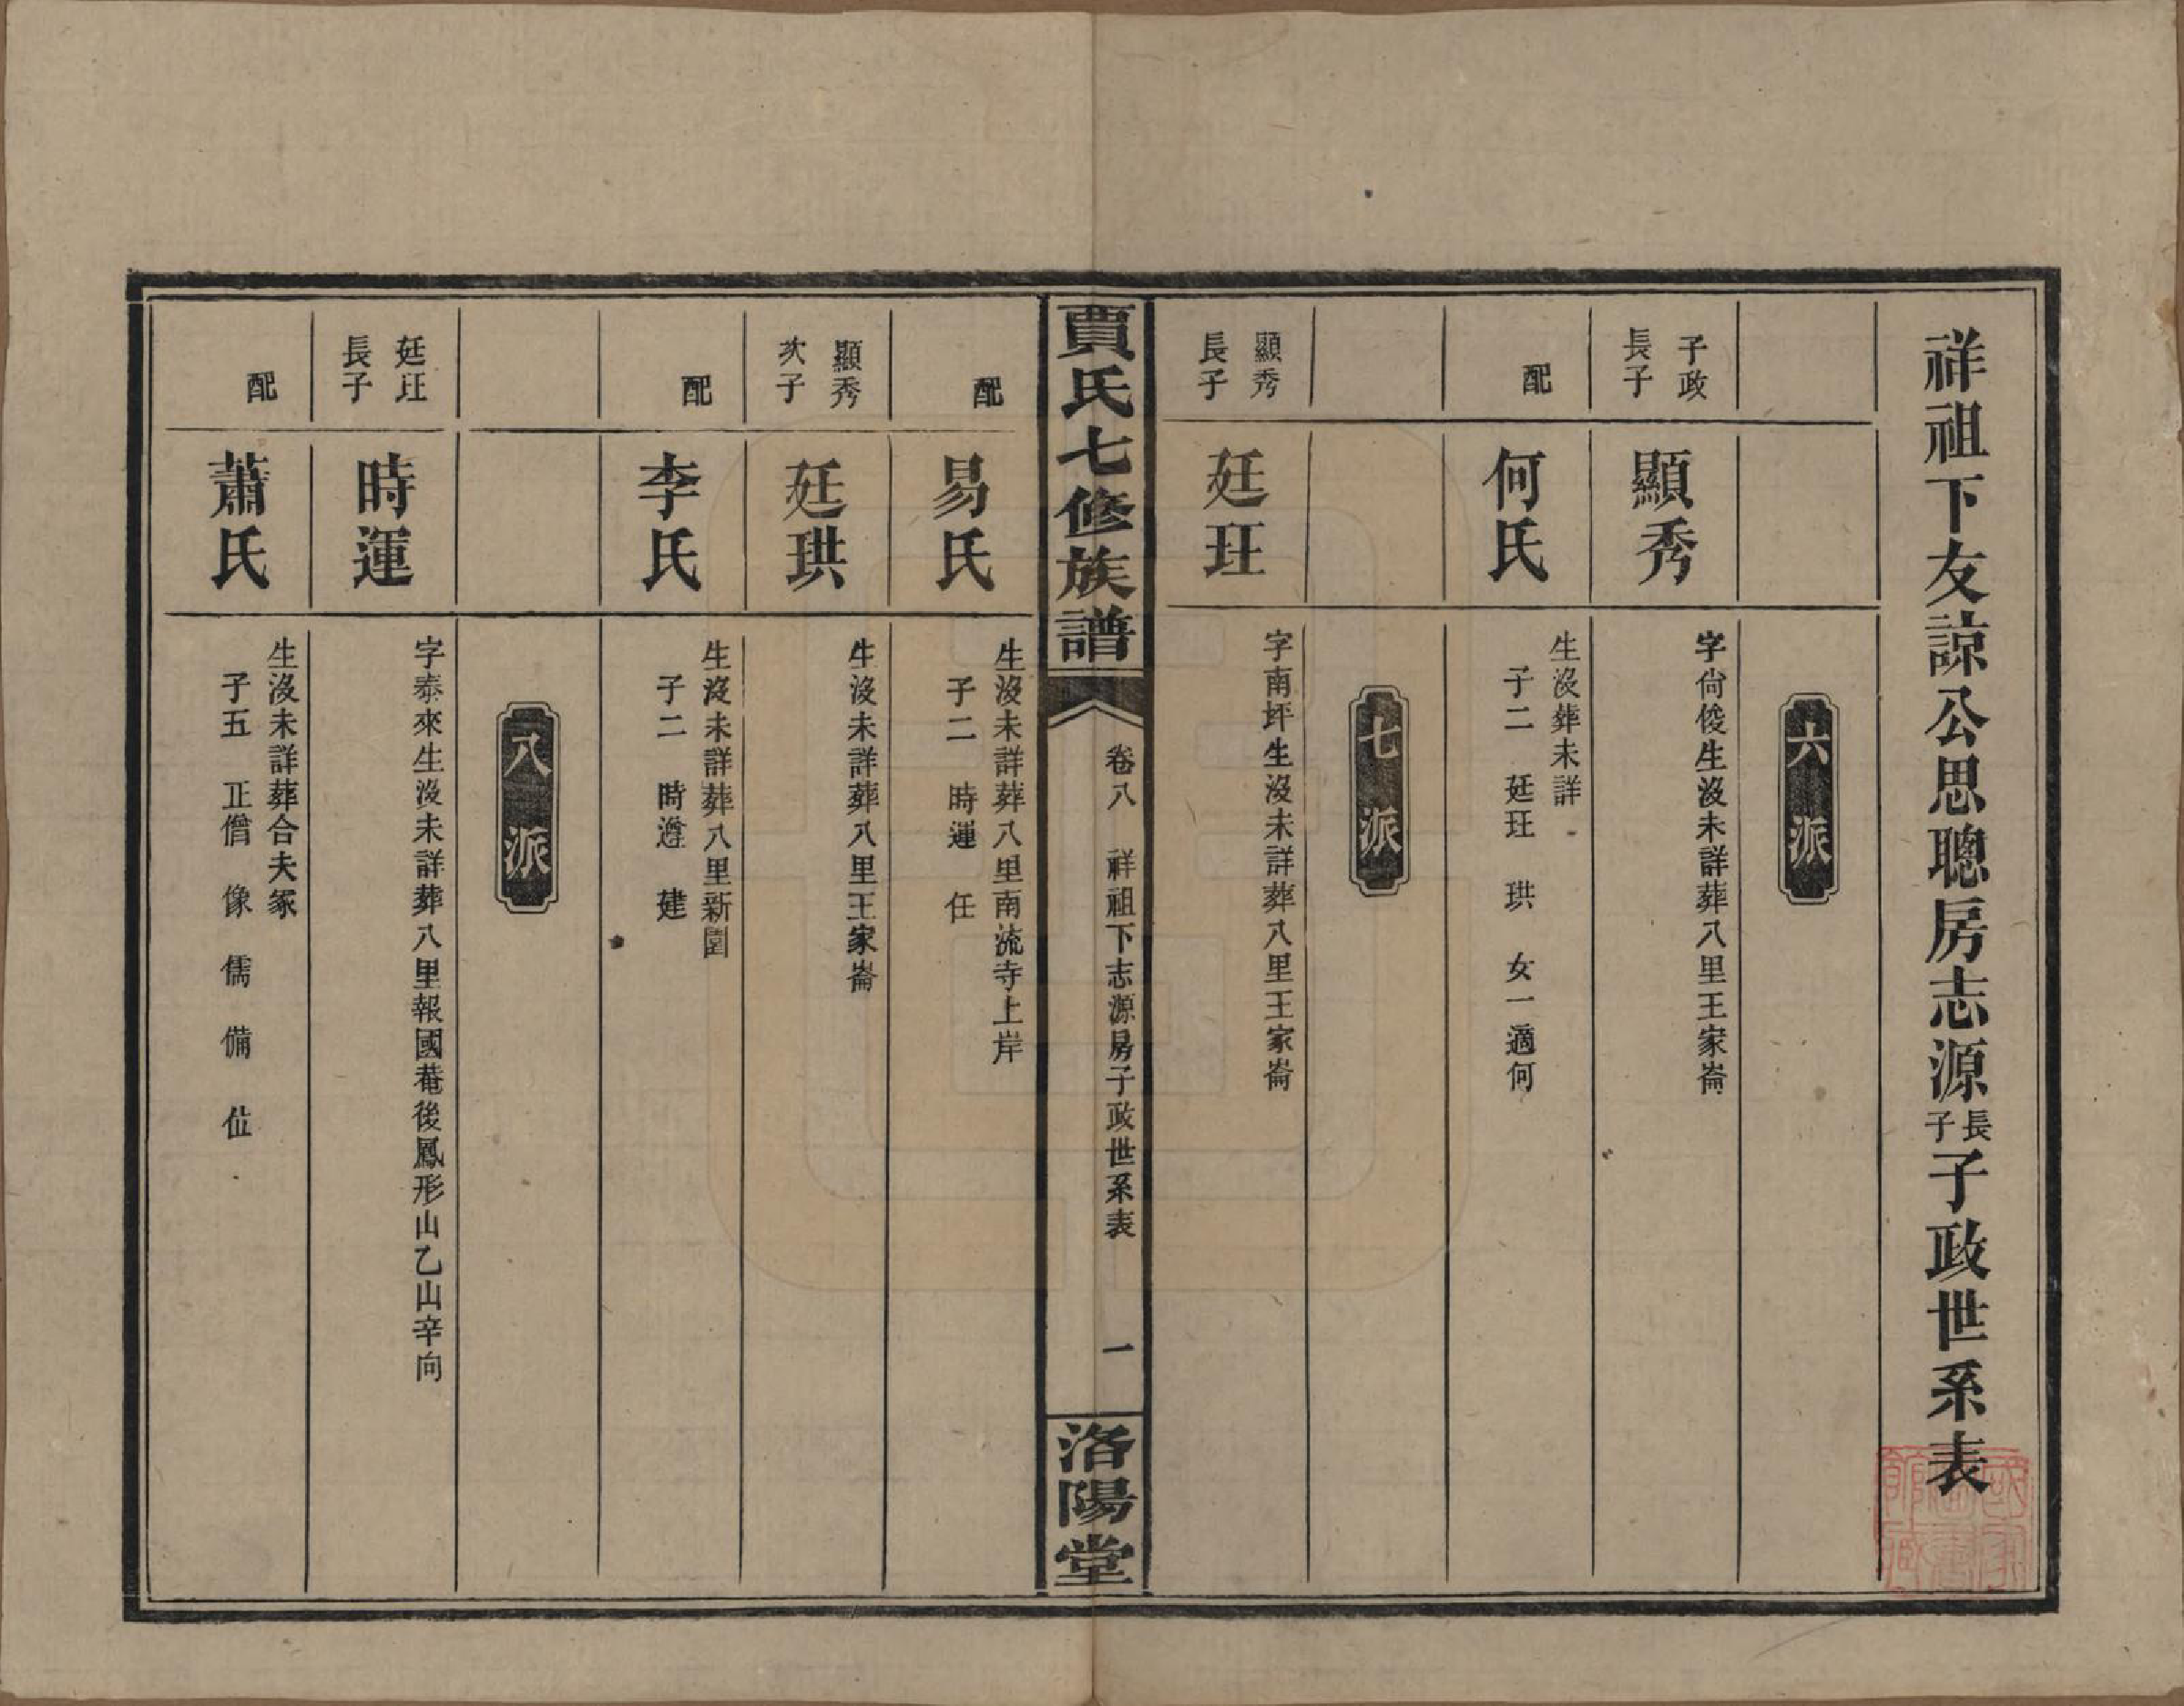 祥祖下友諒公思聰房志源長子子政世系表
六派
子政長子
顯秀
字尙俊生沒未詳葬八里王家崙
配
何氏
生沒葬未詳
子二　廷玨　珙　女一適何
七派
顯秀長子
廷玨
字南坪生沒未詳葬八里王家崙
賈氏七修族譜
卷八　祥祖下志源房子政世系表
一
洛陽堂
配
易氏
生沒未詳葬八里南流寺上岸
子二　時運　任
顯秀次子
廷珙
生沒未詳葬八里王家崙
配
李氏
生沒未詳葬八里新園
子二　時遵　建
八派
廷玨長子
時運
字泰來生沒未詳葬八里報國菴後鳳形山乙山辛向
配
蕭氏
生沒未詳葬合夫冢
子五　正僧　像　儒　備　位